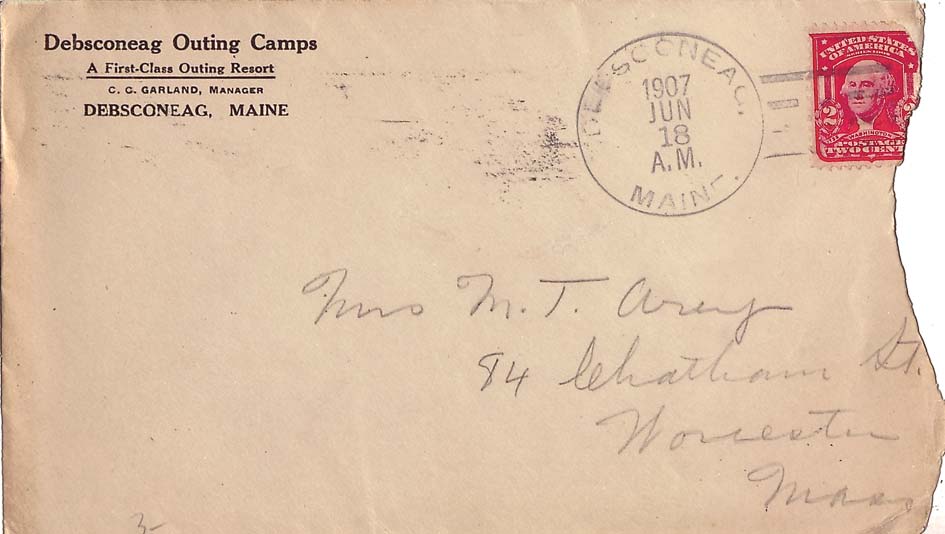 Debsconeag Outing Camps
A First-Class Outing Resort
C. C. GARLAND, MANAGER
DEBSCONEAG, MAINE
DEBSCONEAG,
1907
JUN
18
A.M.
MAINE.
UNITED STATES
OF AMERICA
SERIES 1902
2
WASHINGTON
POSTAGE
TWO CENT
Mrs M. T. Arey
84 Chatham St.
Worcester
Mass
3